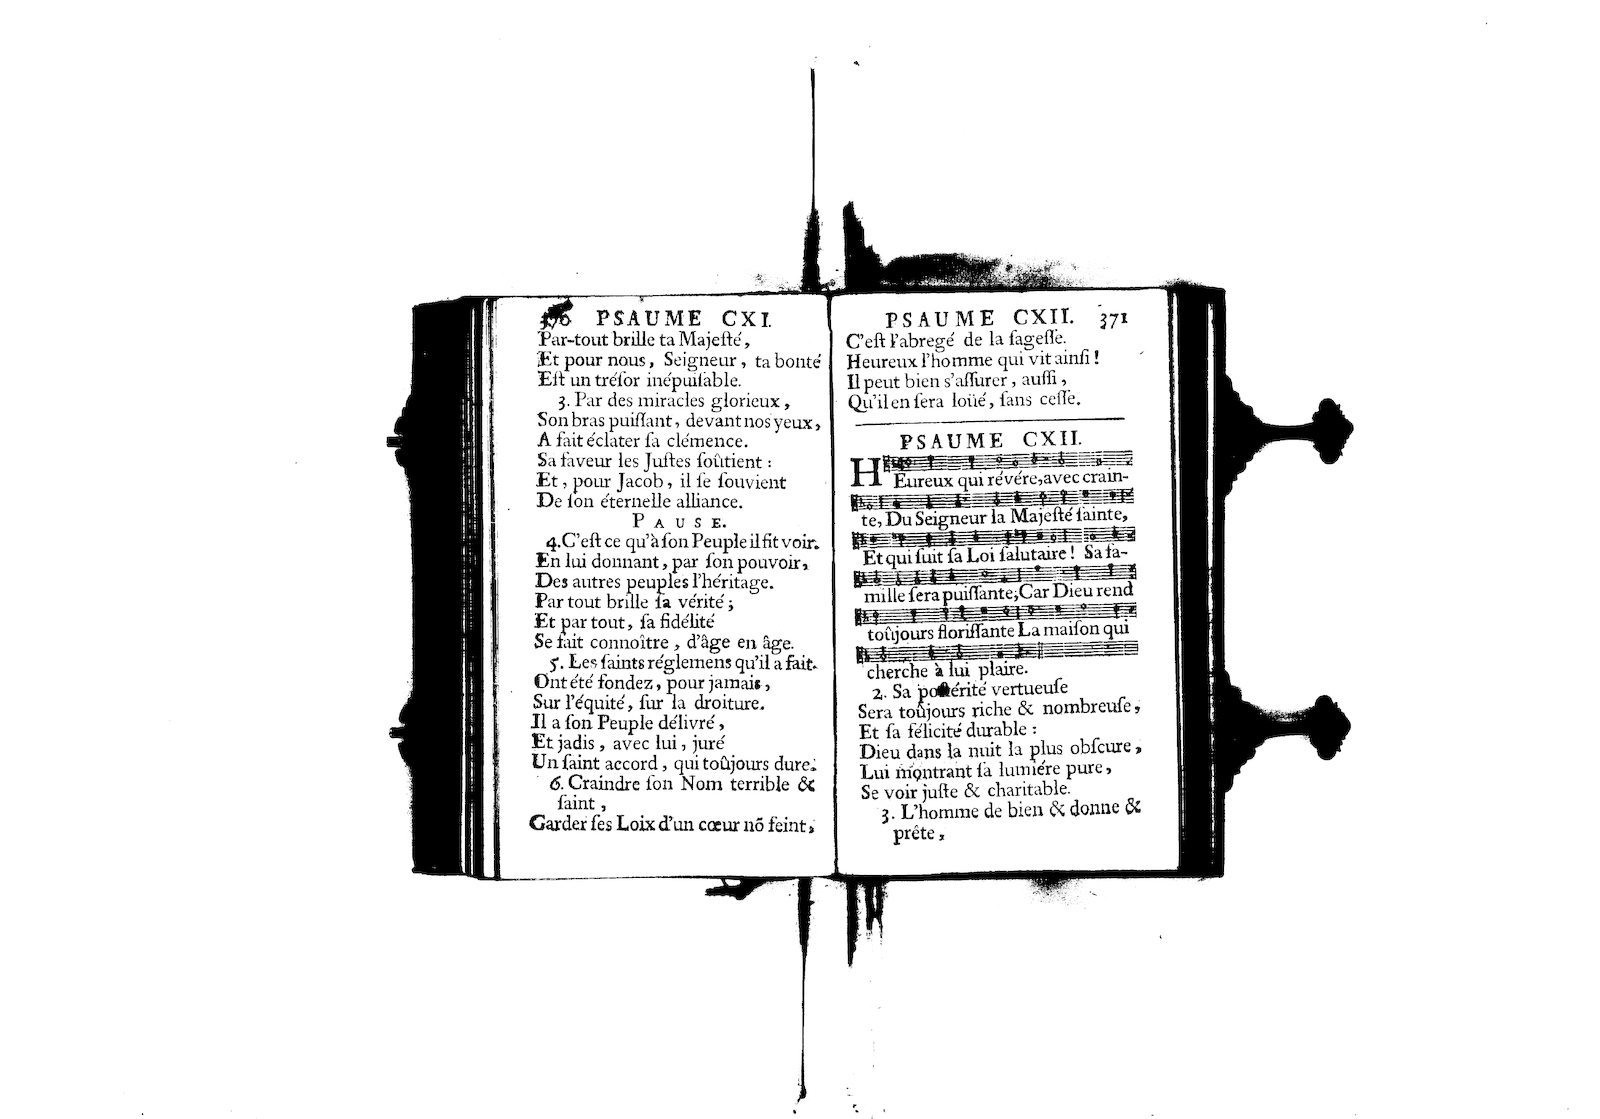 370 PSAUME CXI.
Par-tout brille ta Majeſté,
Et pour nous, Seigneur, ta bonté
Eſt un tréſor inépuiſable.
3. Par des miracles glorieux,
Son bras puiſſant, devant nos yeux,
A fait éclater ſa clémence.
Sa faveur les Juſtes ſoûtient :
Et, pour Jacob, il ſe ſouvient
De ſon éternelle alliance.
PAUSE.
4. C'eſt ce qu'à ſon Peuple il fit voir.
En lui donnant, par ſon pouvoir,
Des autres peuples l'héritage.
Par tout brille ſa vérité ;
Et par tout, ſa fidélité
Se fait connoître, d'âge en âge.
5. Les ſaints réglemens qu'il a fait.
Ont été fondez, pour jamais,
Sur l'équité, ſur la droiture.
Il a ſon Peuple délivré,
Et jadis, avec lui, juré
Un ſaint accord, qui toûjours dure.
6. Craindre ſon Nom terrible &
ſaint,
Garder ſes Loix d'un cœur nõ feint,
PSAUME CXII. 371
C'eſt l'abregé de la ſageſſe.
Heureux l'homme qui vit ainſi !
Il peut bien s'aſſurer, auſſi,
Qu'il en ſera loüé, ſans ceſſe.
PSAUME CXII.
HEureux qui révére, avec crain-
te, Du Seigneur la Majeſté ſainte,
Et qui ſuit ſa Loi ſalutaire ! Sa fa-
mille ſera puiſſante; Car Dieu rend
toûjours floriſſante La maiſon qui
cherche à lui plaire.
2. Sa poſtérité vertueuſe
Sera toûjours riche & nombreuſe,
Et ſa félicité durable :
Dieu dans la nuit la plus obſcure,
Lui montrant ſa lumiére pure,
Se voir juſte & charitable.
3. L'homme de bien & donne &
prête,